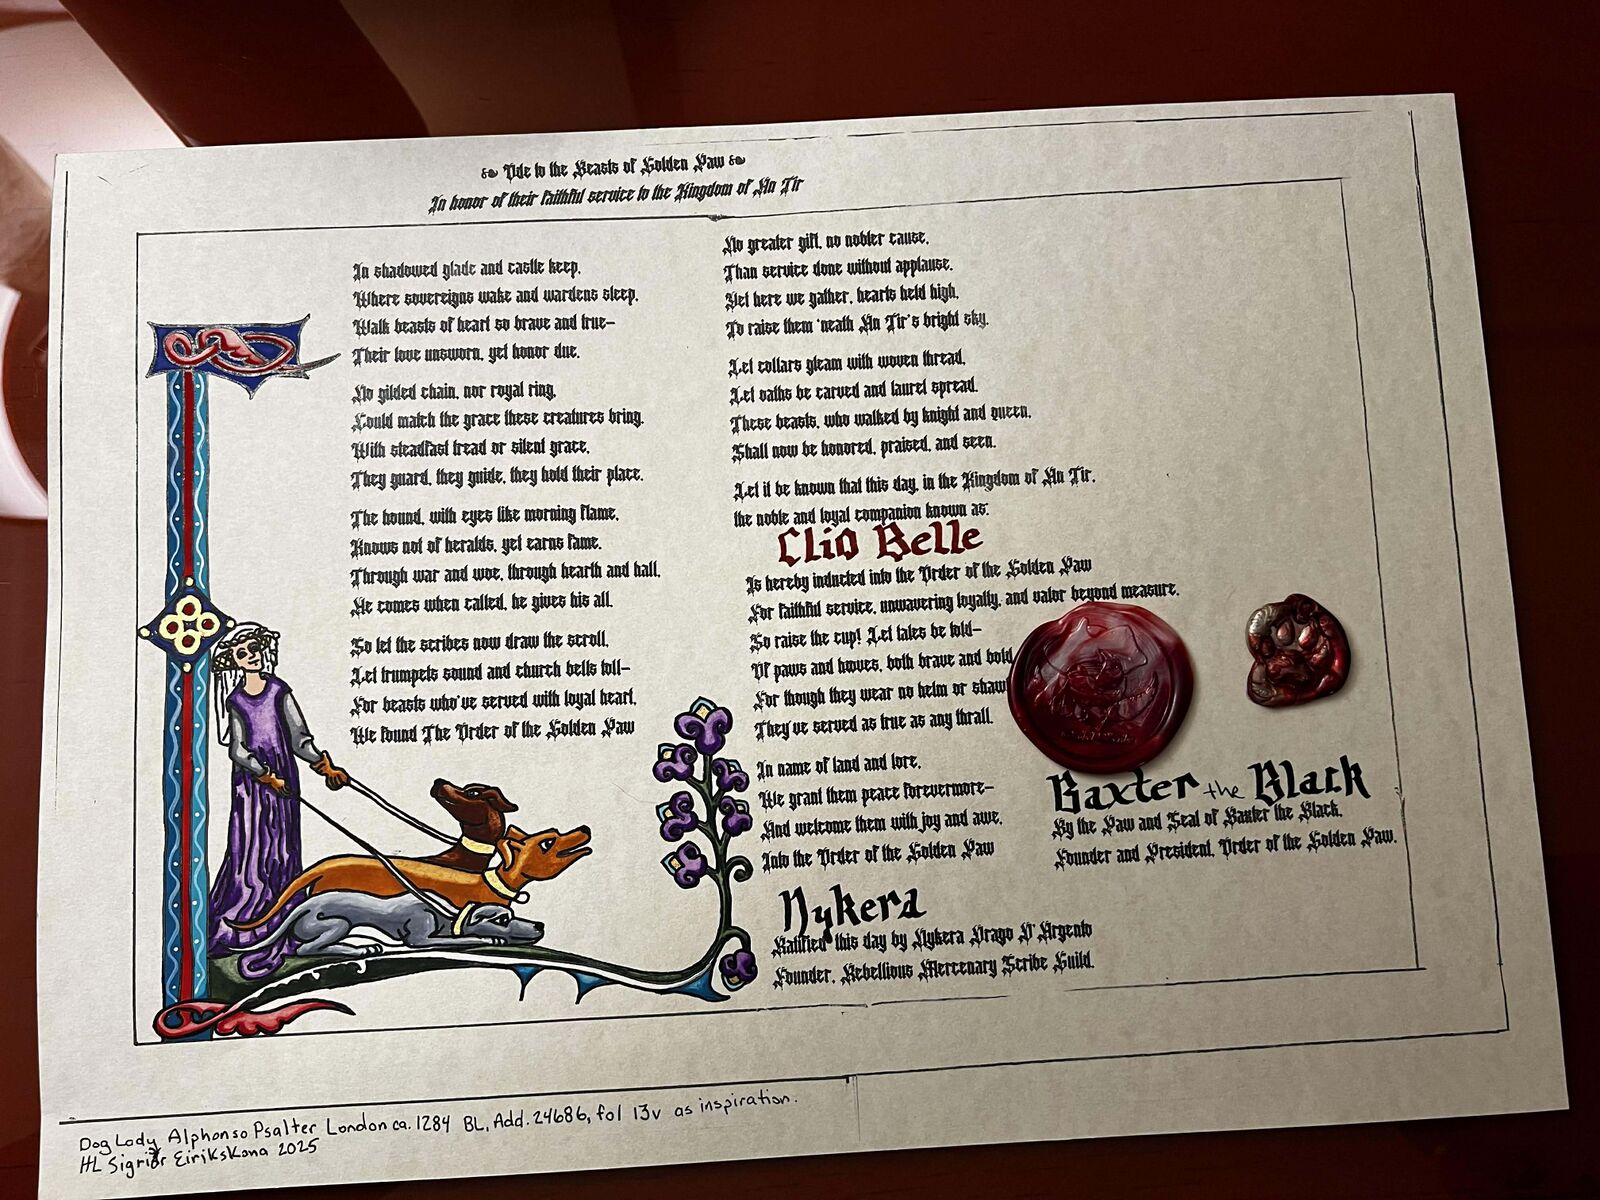 Ode to the Beasts of Golden Paw
In honor of their faithful service to the Kingdom of An Tir
In shadowed glade and castle keep,
Where sovereigns wake and wardens sleep,
Walk beasts of heart so brave and true—
Their love unsworn, yet honor due.
No gilded chain, nor royal ring,
Could match the grace these creatures bring.
With steadfast tread or silent grace,
They guard, they guide, they hold their place.
The hound, with eyes like morning flame,
Knows not of heralds, yet earns fame.
Through war and woe, through hearth and hall,
He comes when called, he gives his all.
So let the scribes now draw the scroll,
Let trumpets sound and church bells toll—
For beasts who've served with loyal heart,
We found The Order of the Golden Paw
No greater gift, no nobler cause,
Than service done without applause.
Yet here we gather, hearts held high,
To raise them 'neath An Tir's bright sky.
Let collars gleam with woven thread,
Let oaths be carved and laurel spread.
These beasts, who walked by knight and queen,
Shall now be honored, praised, and seen.
Let it be known that this day, in the Kingdom of An Tir,
the noble and loyal companion known as:
Clio Belle
Is hereby inducted into the Order of the Golden Paw
For faithful service, unwavering loyalty, and valor beyond measure.
So raise the cup! Let tales be told—
Of paws and hooves, both brave and bold
For though they wear no helm or shawl
They've served as true as any thrall.
In name of land and lore,
We grant them peace forevermore—
And welcome them with joy and awe,
Into the Order of the Golden Paw
Nykera
Ratified this day by Nykera Drago D'Argento
Founder, Rebellious Mercenary Scribe Guild.
Baxter the Black
By the Paw and Seal of Baxter the Black,
Founder and President, Order of the Golden Paw.
Dog Lady Alphonso Psalter London ca. 1284 BL, Add. 24686, fol 13v as inspiration.
HL Sigriðr Eiriksкona 2025